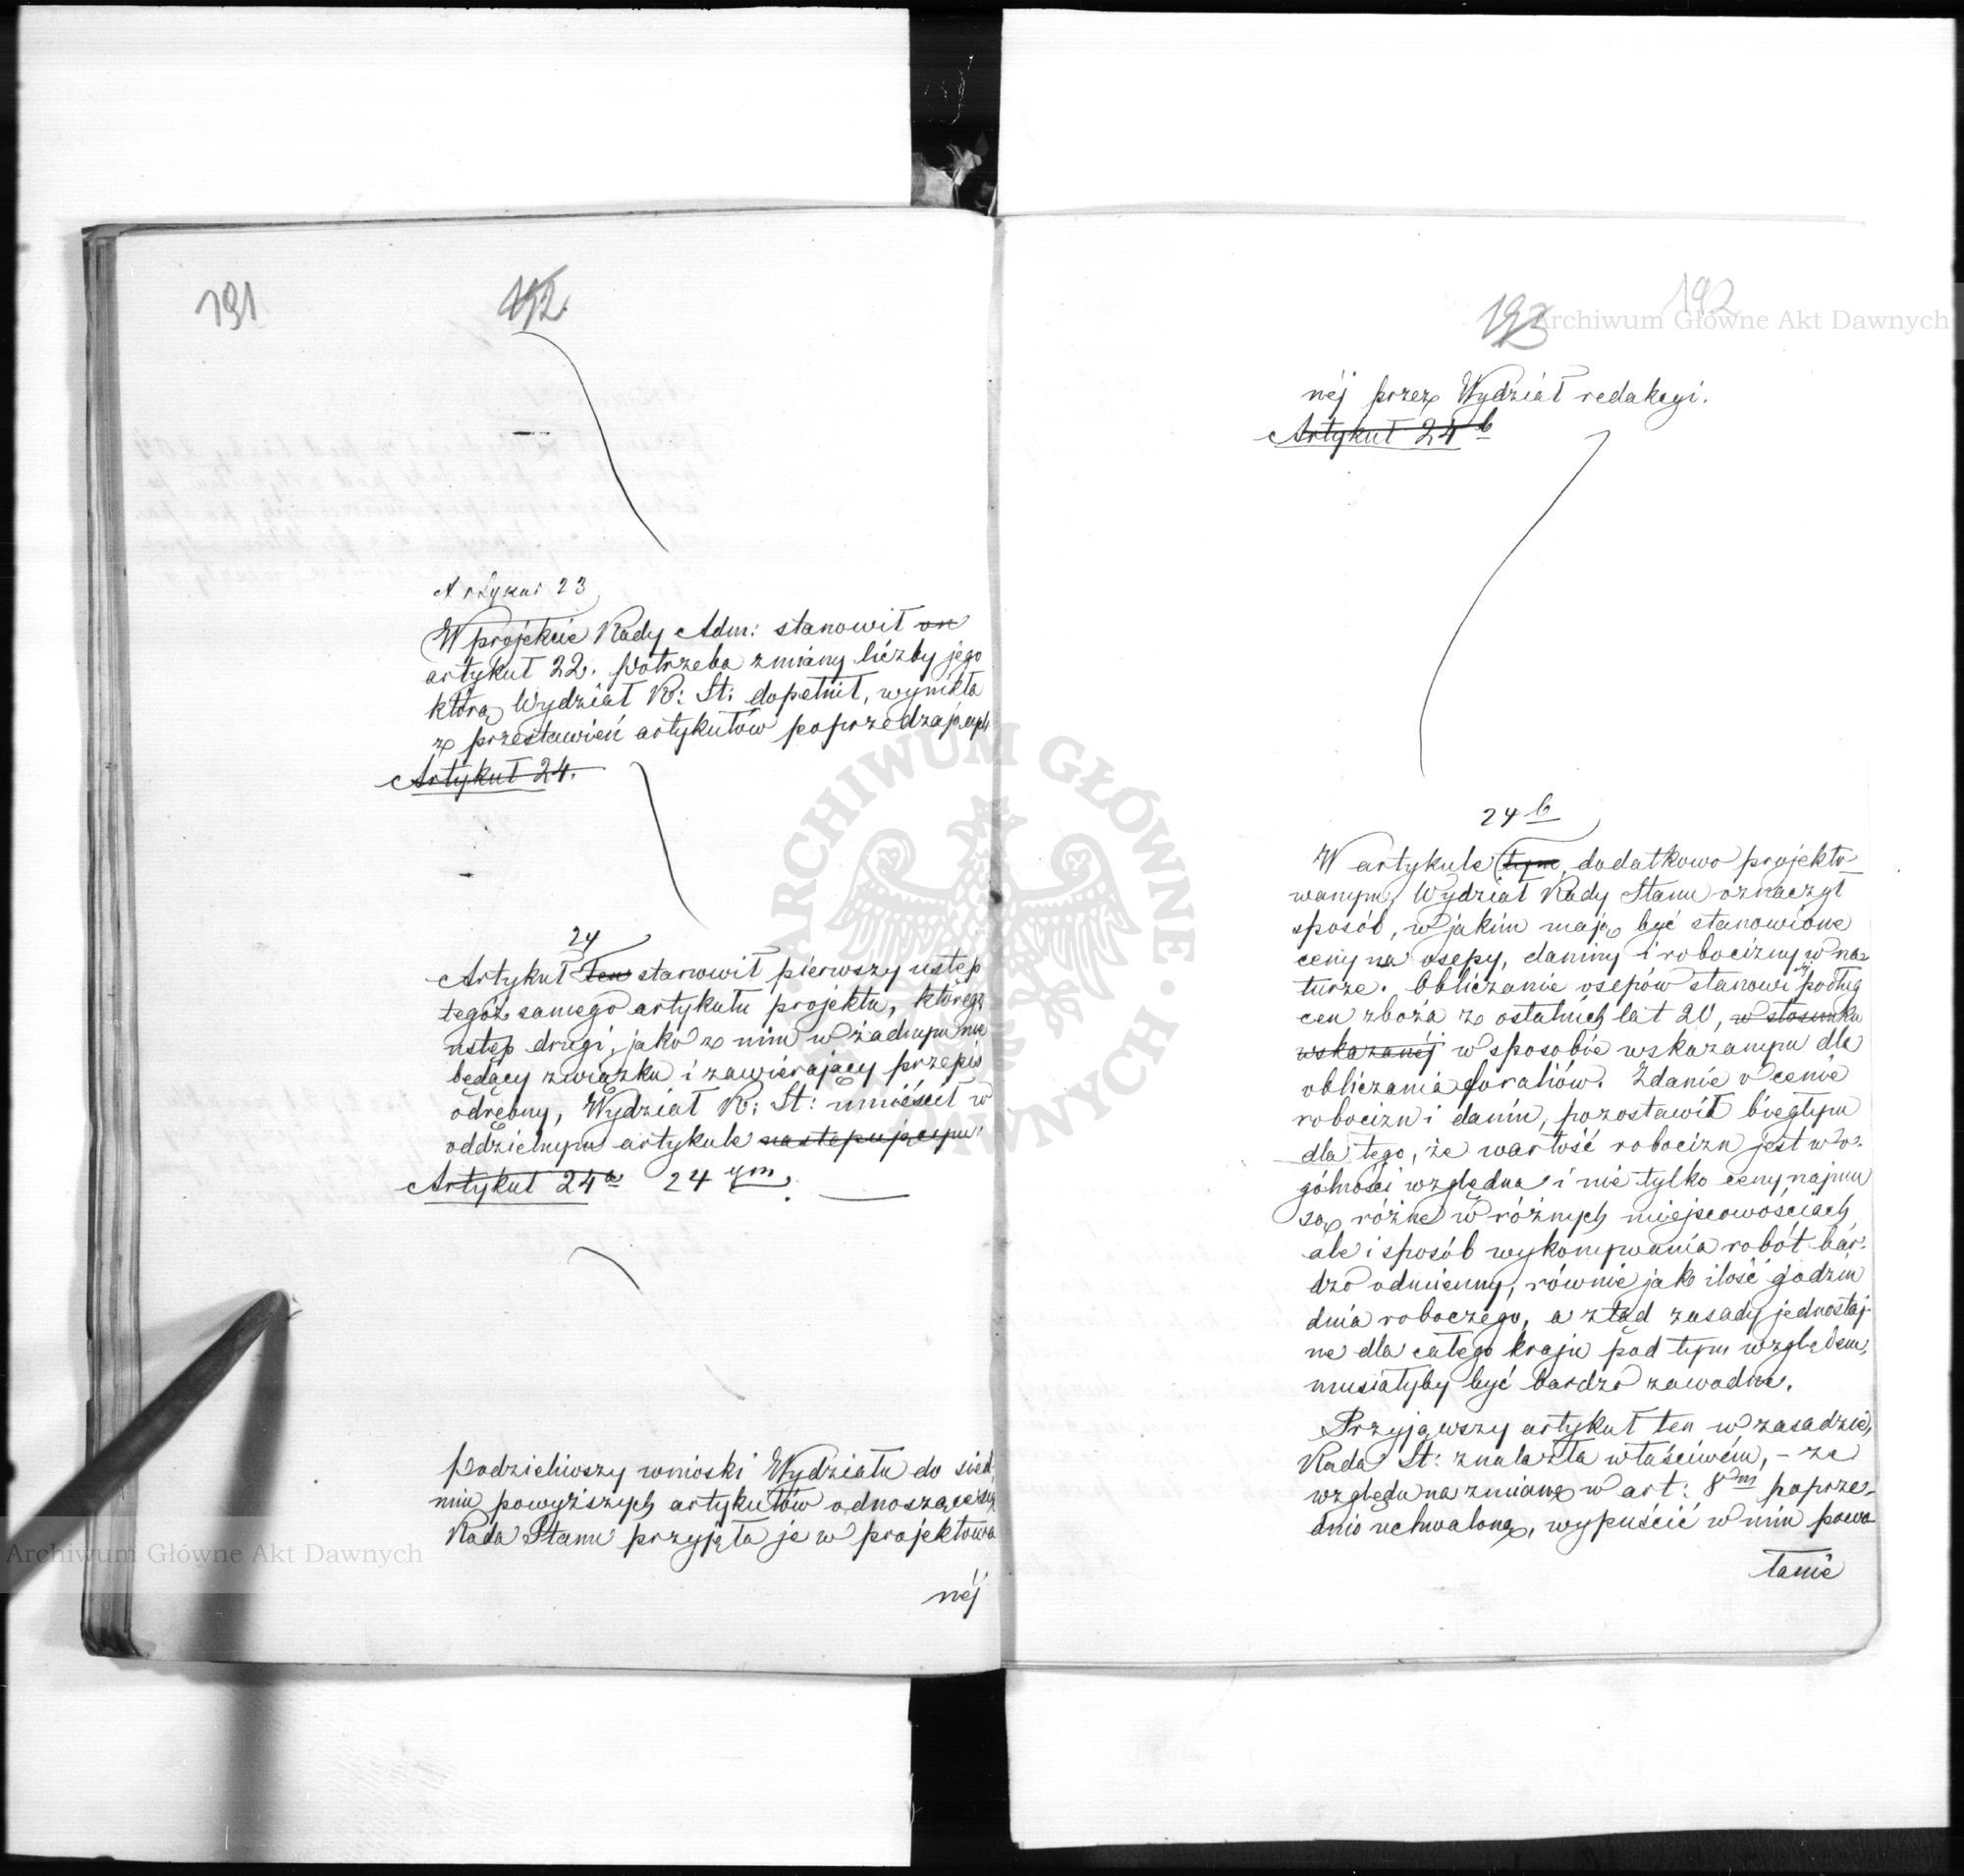 191
192
Artykuł 23
W projekcie Rady Adm: stanowił on
artykuł 22. potrzeba zmiany liczby jego
którą Wydział R: St: dopełnił, wynikła
z przestawień artykułów poprzedzających
Artykuł 24.
24
Artykuł ten stanowił pierwszy ustęp
tegoż samego artykułu projektu, którego
ustęp drugi, jako z nim w żadnym nie
będący związku i zawierający przepis
odrębny, Wydział R: St: umieścił w
oddzielnym artykule następującym
Artykuł 24a 24 ym.
Podzieliwszy wnioski Wydziału do sied-
miu powyższych artykułów odnoszące się
Rada Stanu przyjęła je w projektowa
néj
192
193
néj przez Wydział redakcyi.
Artykuł 24 b
24 b
W artykule tym dodatkowo projekto-
wanym, Wydział Rady Stanu oznaczył
sposób, w jakim mają być stanowione
ceny na osepy, daniny i robocizny w na-
turze. Obliczanie osepów stanowi podług
cen zboża z ostatnich lat 20, w stosunku
wskazanéj w sposobie wskazanym dla
obliczania foraliów. Zdanie o cenie
robocizn i danin, pozostawił biegłym
dla tego, że wartość robocizn jest w o-
gólności względna i nie tylko ceny najmu
są różne w różnych miejscowościach
ale i sposób wykonywania robót bar-
dzo odmienny, równie jak ilość godzin
dnia roboczego, a ztąd zasady jednostaj-
ne dla całego kraju pod tym względem,
musiałyby być bardzo zawodne.
Przyjąwszy artykuł ten w zasadzie,
Rada St: znalazła właściwém, – ze
względu na zmianę w art: 8m poprze-
dnio uchwaloną, wypuścić w nim powo
łanie
Archiwum Główne Akt Dawnych
Archiwum Główne Akt Dawnych
ARCHIWUM GŁÓWNE AKT DAWNYCH